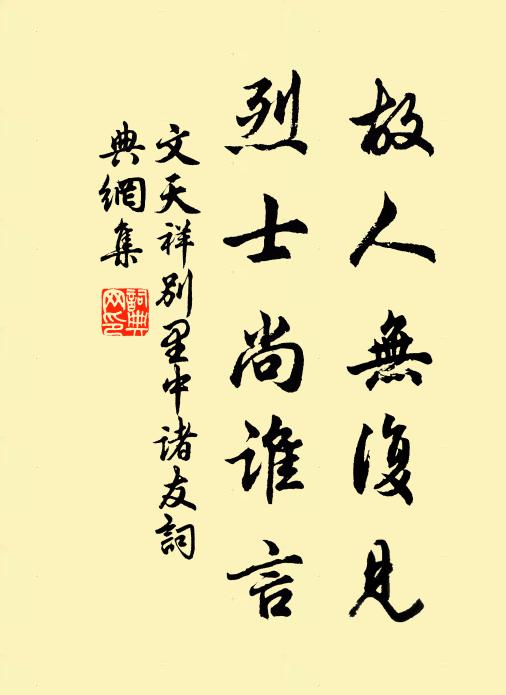 故人無復見
烈士尚誰言
文天祥別里中諸友詞
典網集
詞典網印